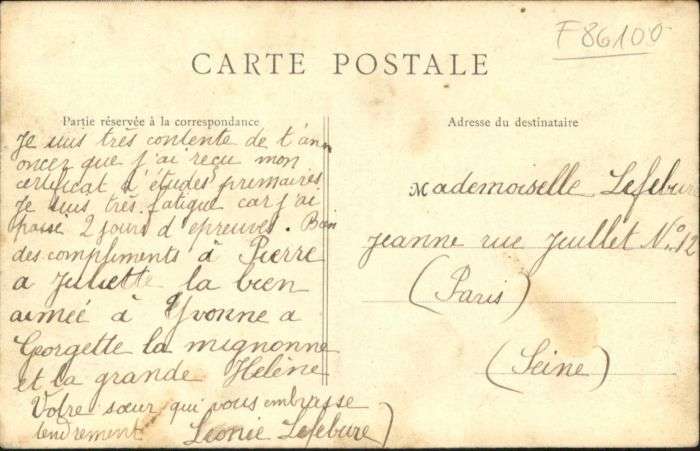 F86100
CARTE POSTALE
Partie réservée à la correspondance
Je suis très contente de t'ann
oncer que j'ai reçu mon
certificat d'études primaires
Je suis très fatigue car j'ai
passé 2 jours d'epreuves. Bien
des compliments à Pierre
a Juliette la bien
aimée à Yvonne a
Georgette la mignonne
et la grande Hélène
Votre sœur qui vous embrasse
tendrement Leonie Lefebure
Adresse du destinataire
Mademoiselle Lefebur
Jeanne rue Juillet No 12
(Paris)
(Seine)